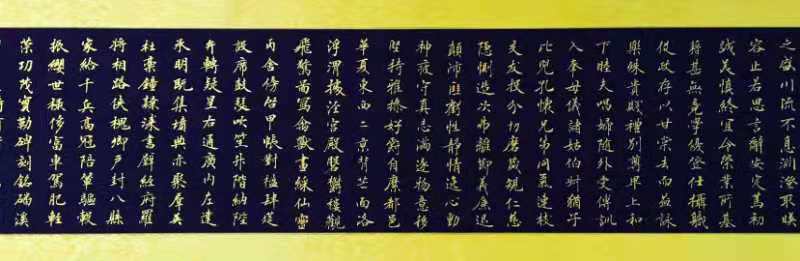 之盛川流不息淵澄取暎
容止若思言辭安定篤初
誠美慎終宜令榮業所基
籍甚無竟學優登仕攝職
從政存以甘棠去而益詠
樂殊貴賤禮別尊卑上和
下睦夫唱婦隨外受傅訓
入奉母儀諸姑伯叔猶子
比兒孔懷兄弟同氣連枝
交友投分切磨箴規仁慈
隱惻造次弗離節義廉退
顛沛匪虧性靜情逸心動
神疲守真志滿逐物意移
堅持雅操好爵自縻都邑
華夏東西二京背芒面洛
浮渭據涇宮殿盤鬱樓觀
飛驚圖寫禽獸畫綵仙靈
丙舍傍啟甲帳對楹肆筵
設席鼓瑟吹笙升階納陛
弁轉疑星右通廣內左達
承明既集墳典亦聚群英
杜稾鍾隸漆書壁經府羅
將相路俠槐卿戶封八縣
家給千兵高冠陪輦驅轂
振纓世祿侈富車駕肥輕
策功茂實勒碑刻銘磻溪